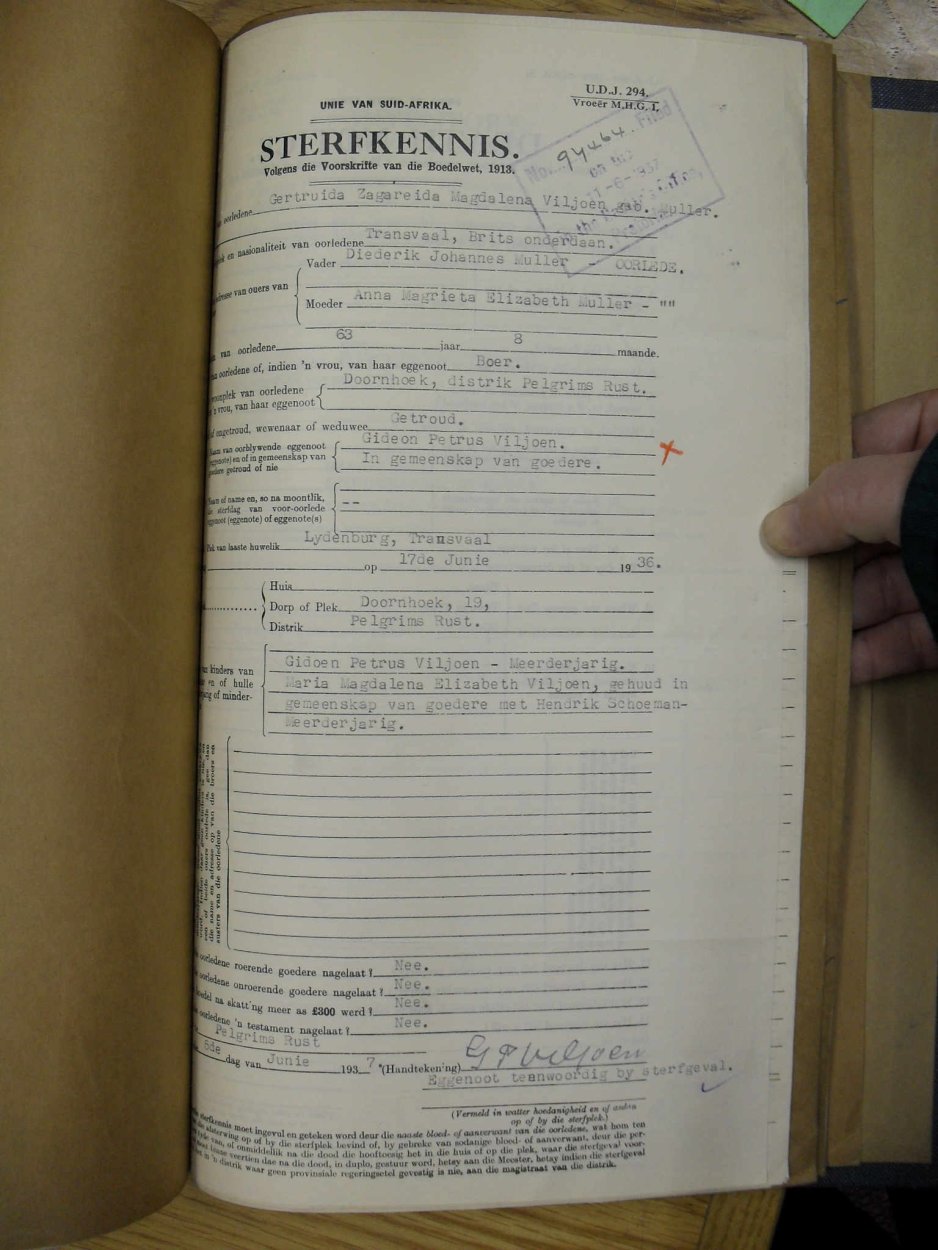 U.D.J. 294.
UNIE VAN SUID-AFRIKA.
Vroeër M.H.G. I.
STERFKENNIS.
Volgens die Voorskrifte van die Boedelwet, 1913.
94464. Filed
on the
-6-1937
in the
Pretoria
oorledene Gertruida Zagareida Magdalena Viljoen geb. Muller.
en nasionaliteit van oorledene Transvaal, Brits onderdaan.
adresse van ouers van
Vader Diederik Johannes Muller - OORLEDE.
Moeder Anna Magrieta Elizabeth Muller - ""
van oorledene 63 jaar 8 maande.
oorledene of, indien 'n vrou, van haar eggenoot Boer.
woonplek van oorledene
'n vrou, van haar eggenoot
Doornhoek, distrik Pelgrims Rust.
of ongetroud, wewenaar of weduwee Getroud.
Naam van oorblywende eggenoot
(eggenote) en of in gemeenskap van
goedere getroud of nie
Gideon Petrus Viljoen.
In gemeenskap van goedere.
Naam of name en, so na moontlik,
die sterfdag van voor-oorlede
eggenoot (eggenote) of eggenote(s)
--
Plek van laaste huwelik Lydenburg, Transvaal
op 17de Junie 1936.
Huis
Dorp of Plek Doornhoek, 19,
Distrik Pelgrims Rust.
van kinders van
en of hulle
-jarig of minder-
Gidoen Petrus Viljoen - Meerderjarig.
Maria Magdalena Elizabeth Viljoen, gehuud in
gemeenskap van goedere met Hendrik Schoeman-
Meerderjarig.
een of beide ouers oorlede is, gee dan
die name en adresse op van die broers en
susters van die oorledene
oorledene roerende goedere nagelaat? Nee.
oorledene onroerende goedere nagelaat? Nee.
boedel na skatt'ng meer as £300 werd? Nee.
oorledene 'n testament nagelaat? Nee.
Pelgrims Rust
6de dag van Junie 1937 (Handtekening) G P Viljoen
Eggenoot teenwoordig by sterfgeval.
(Vermeld in watter hoedanigheid en of anders
op of by die sterfplek.)
sterfkennis moet ingevul en geteken word deur die naaste bloed- of aanverwant van die oorledene, wat hom ten
die afsterwing op of by die sterfplek bevind of, by gebreke van sodanige bloed- of aanverwant, deur die per-
of onmiddellik na die dood die hooftoesig het in die huis of op die plek, waar die sterfgeval voor-
veertien dae na die dood, in duplo, gestuur word, hetsy aan die Meester, hetsy indien die sterfgeval
in 'n distrik waar geen provinsiale regeringsetel gevestig is nie, aan die magistraat van die distrik.